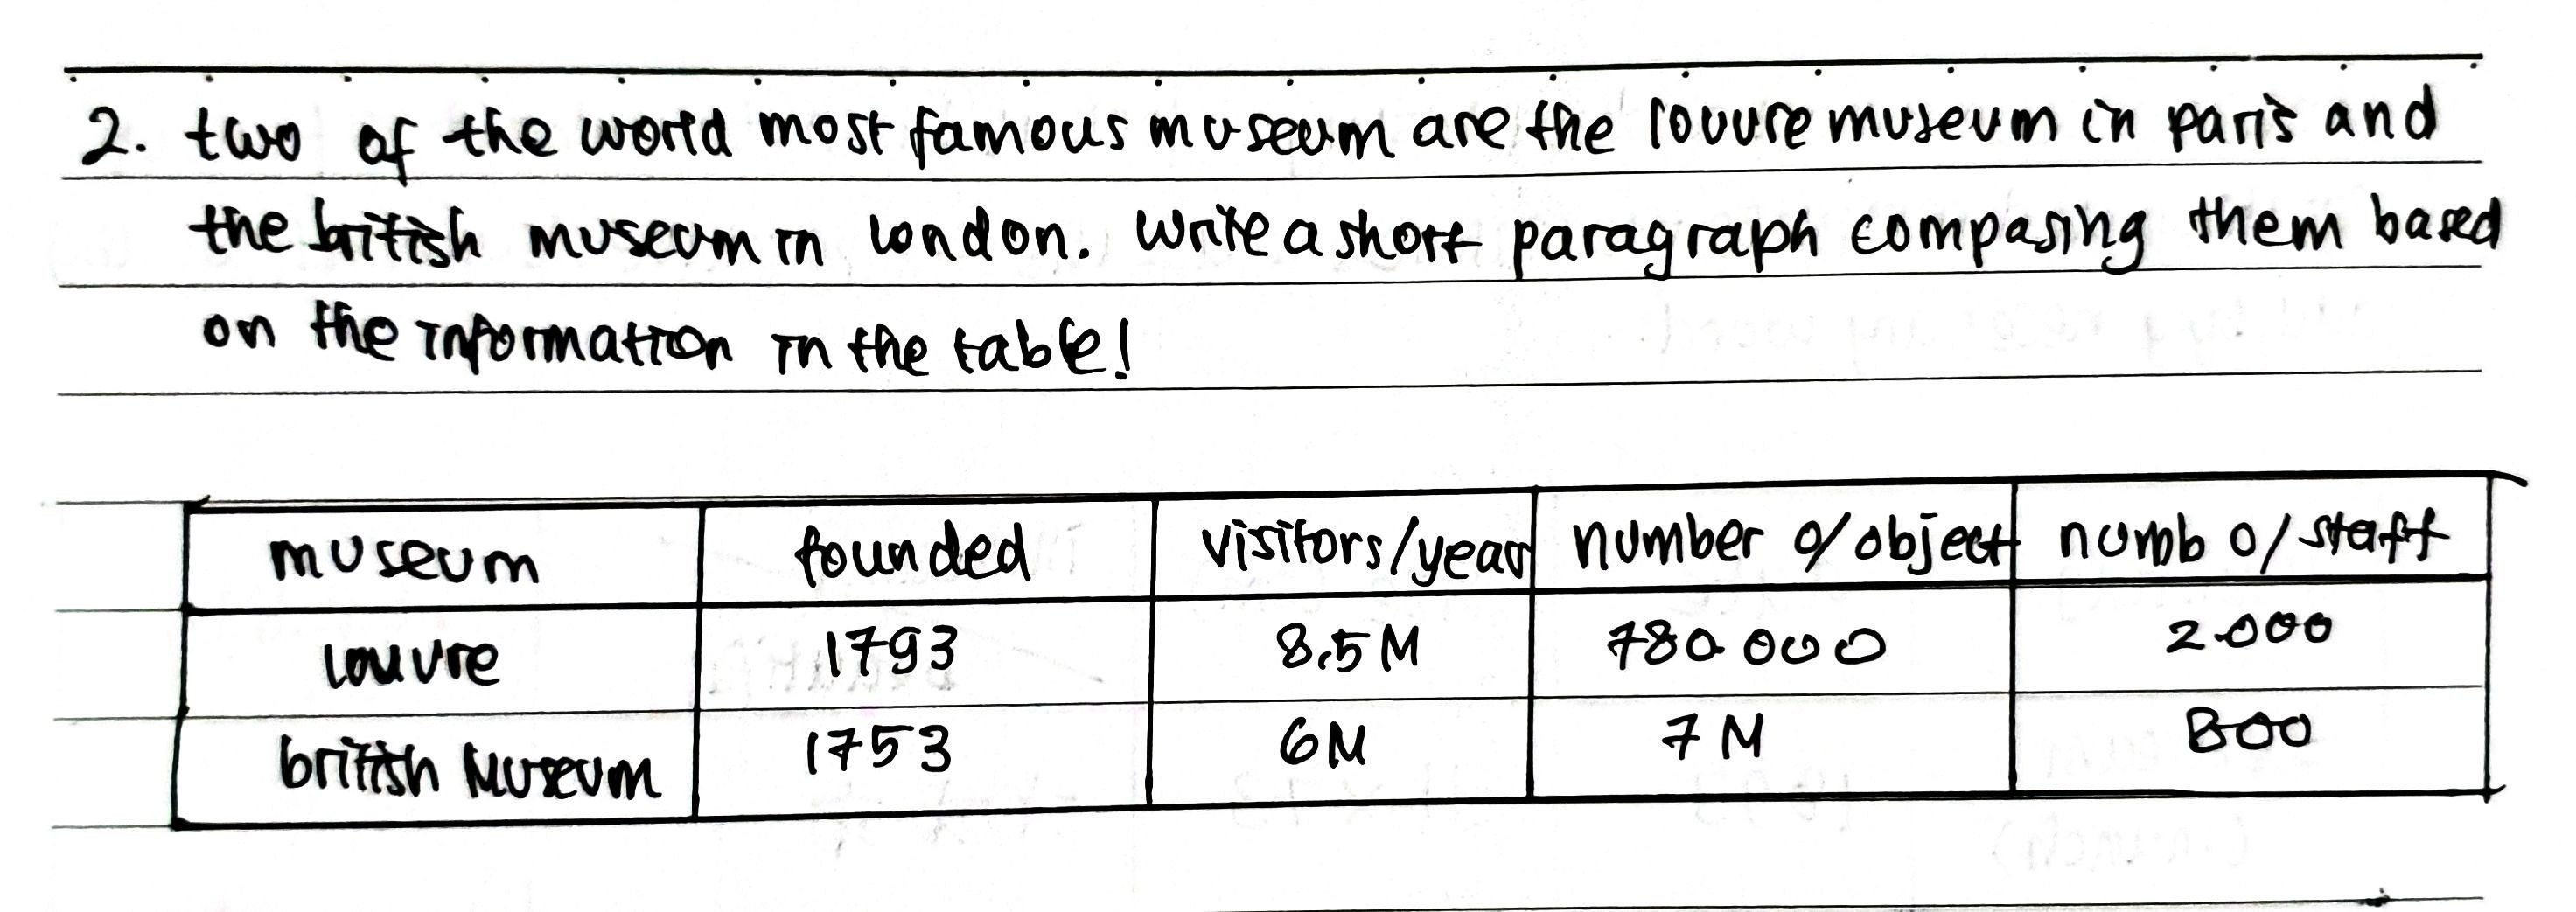 2. two of the world most famous museum are the louvre museum in paris and
the british museum in london. Write a short paragraph comparing them based
on the information in the table!
museum founded visitors/year number o/object numb o/staff
louvre 1793 8,5 M 780.000 2.000
british Museum 1753 6M 7 M 800